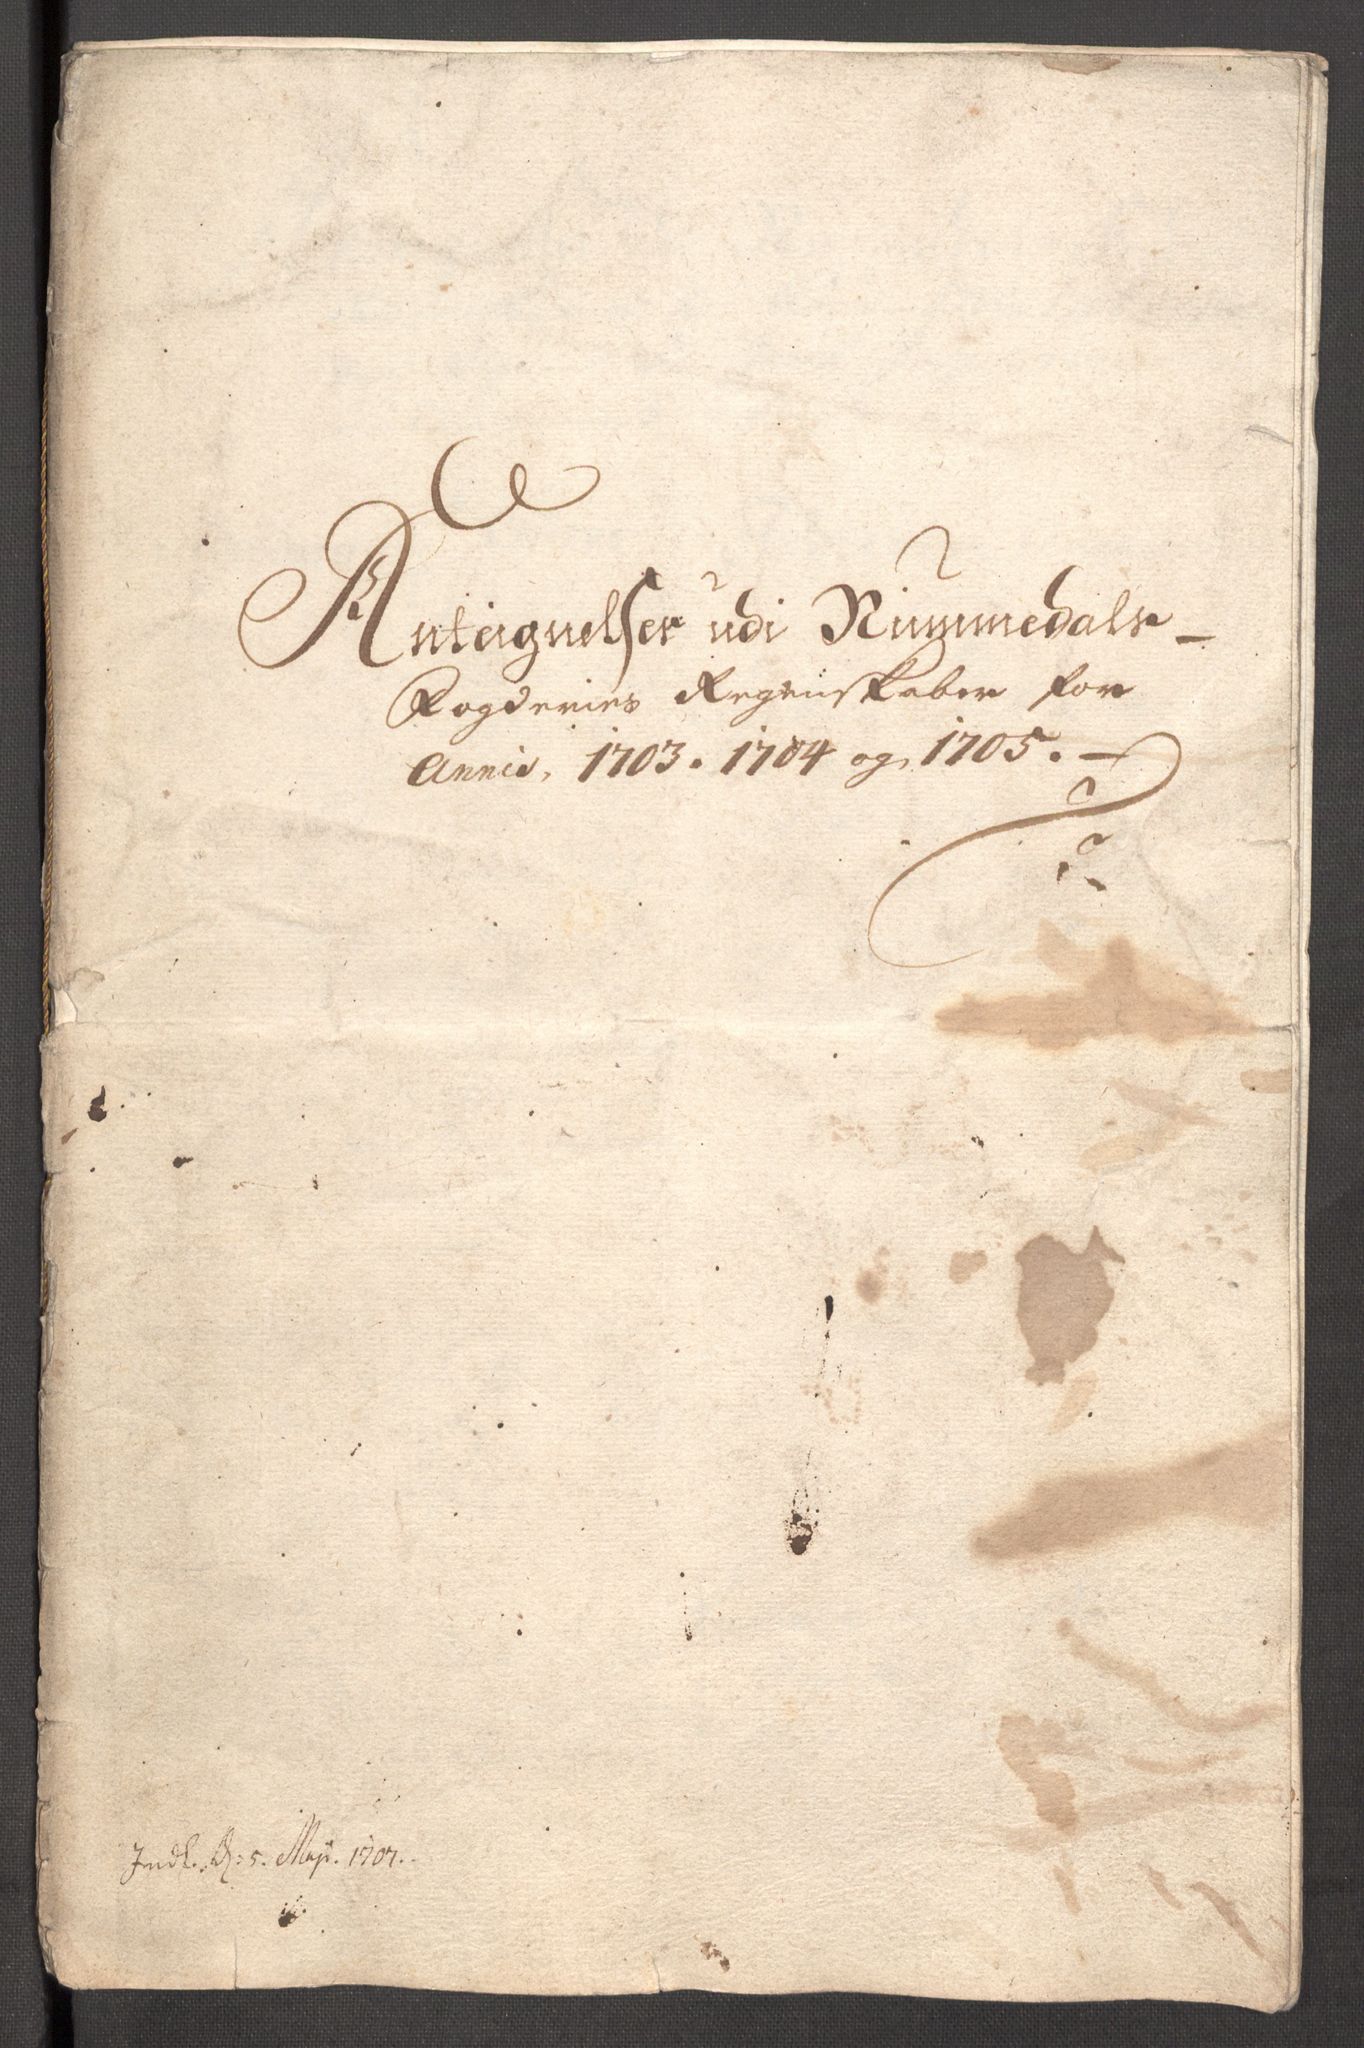 Antegnelser udi Nummedals
Fogderies Regenskaber for
Annis, 1703. 1704 og 1705.
Indl. d: 5. Maji. 1707.